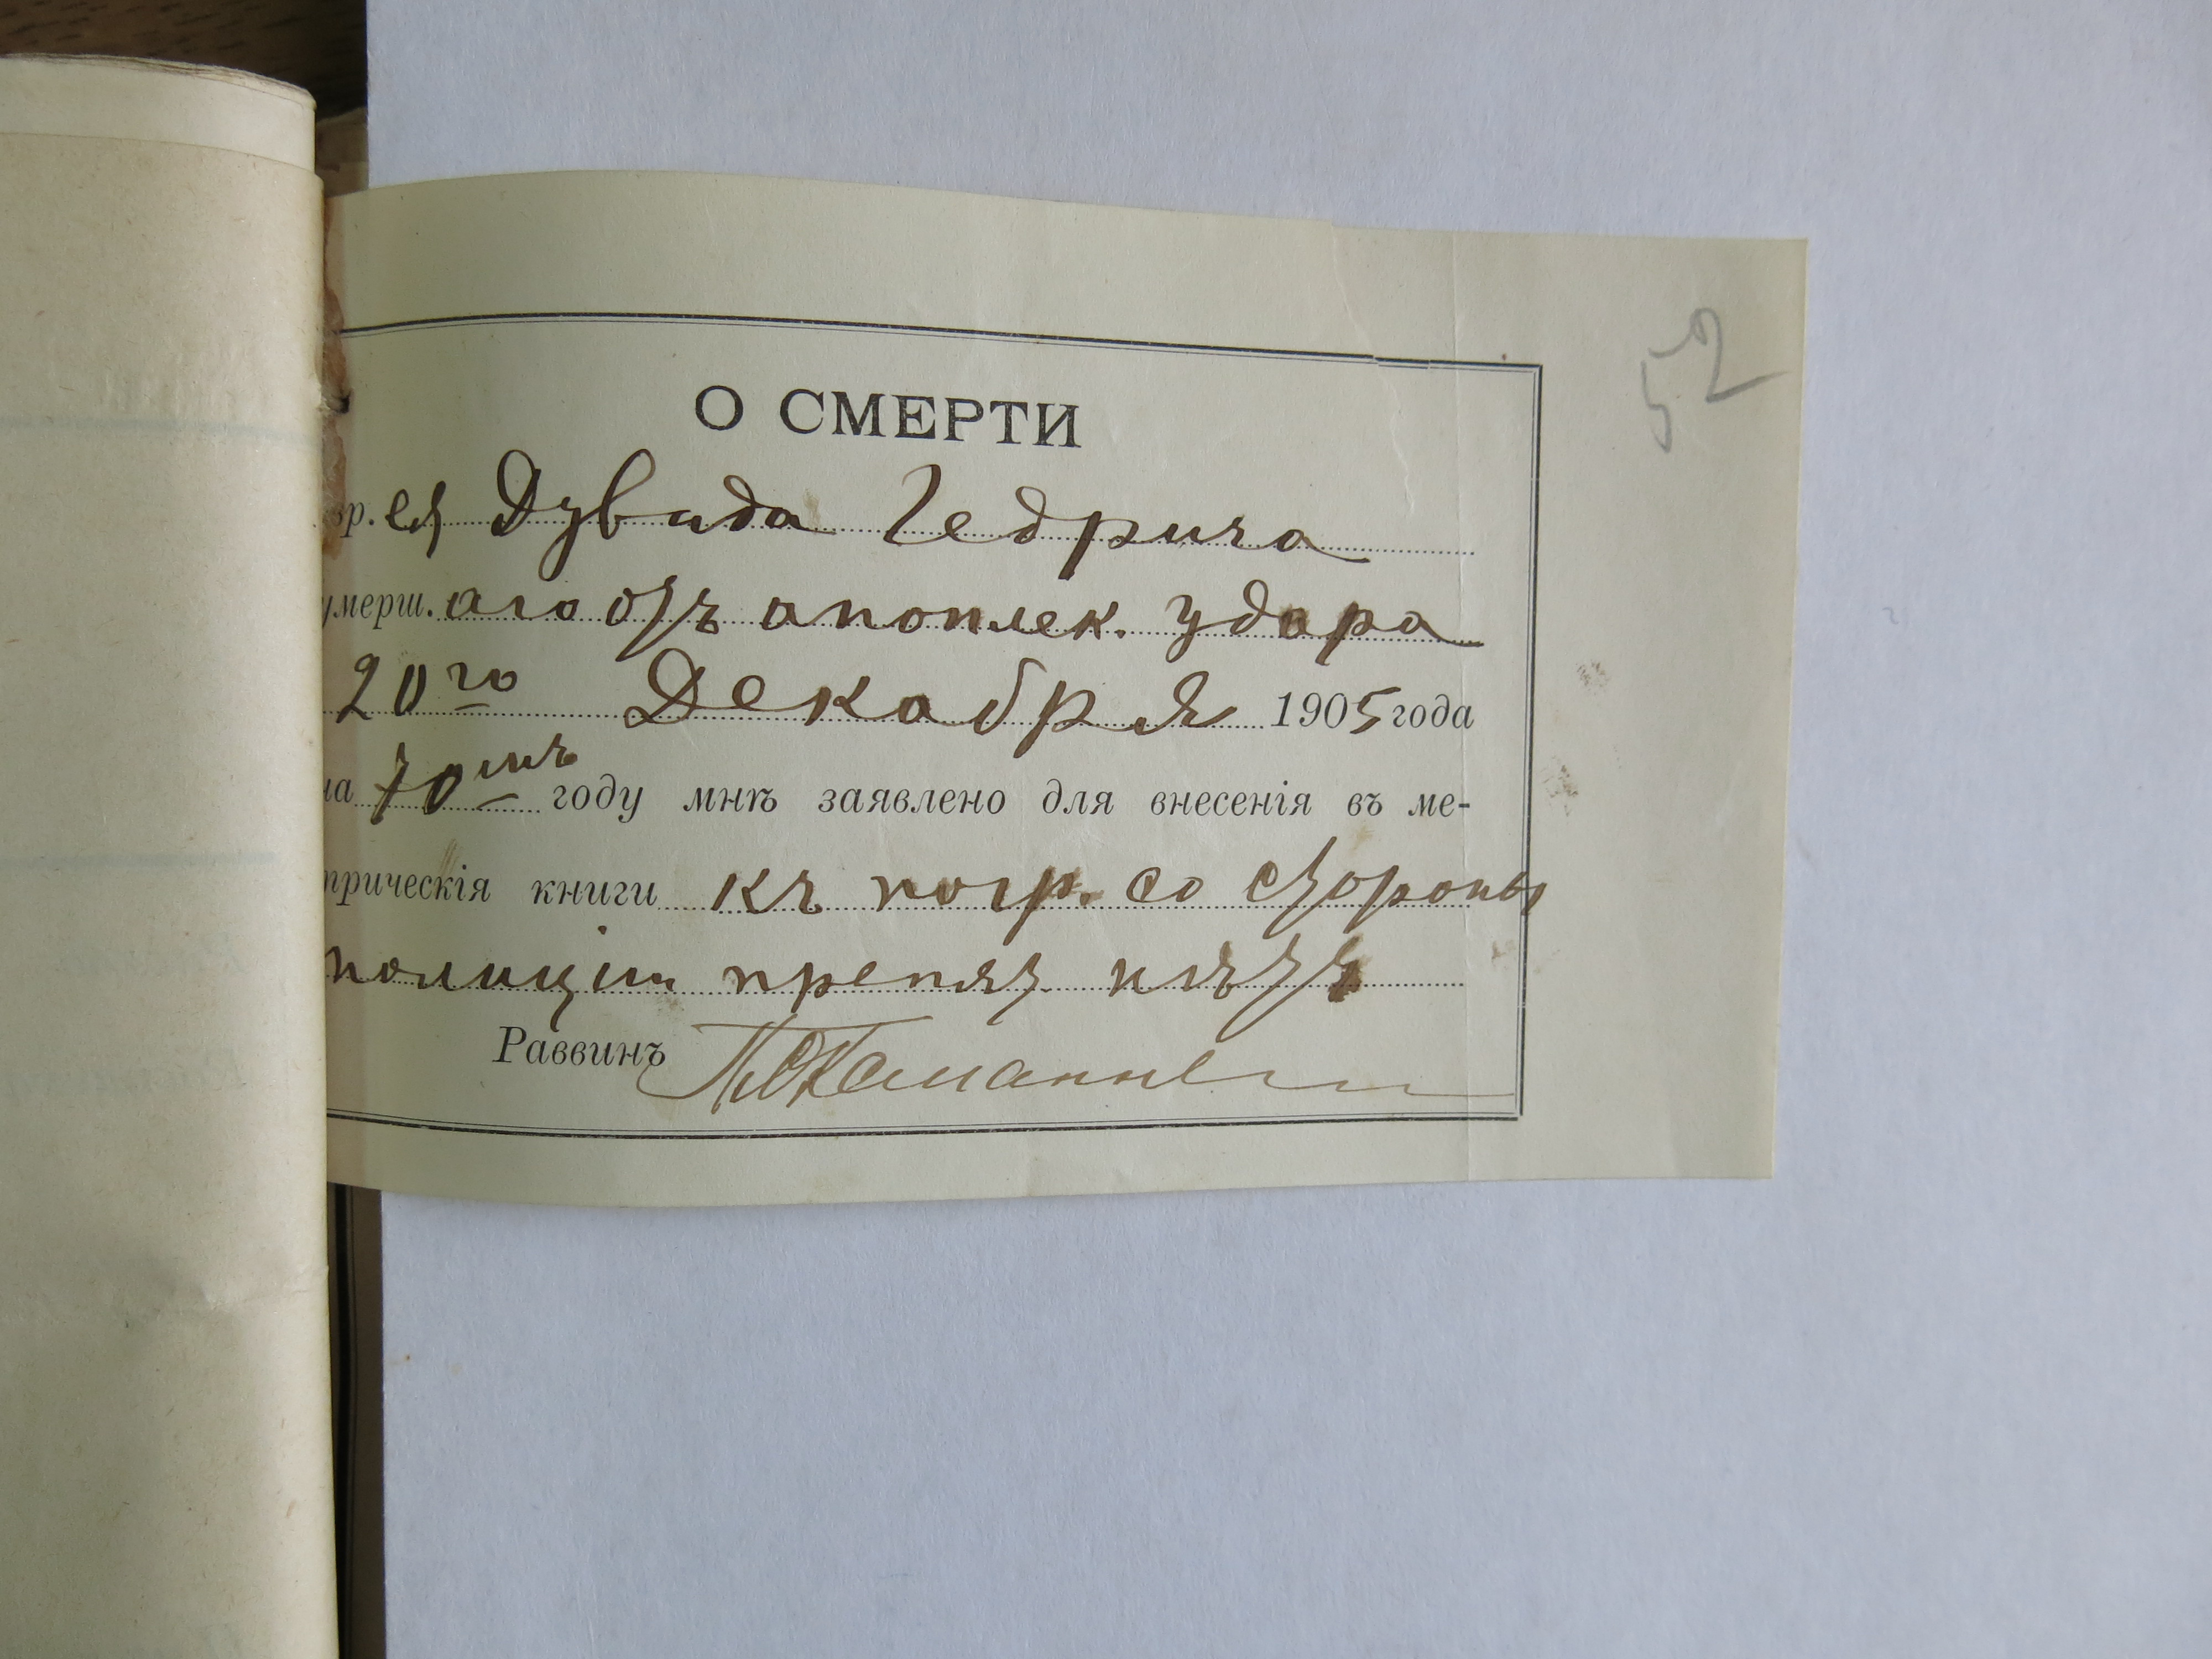 52
О СМЕРТИ
вр. ея Дувида Гедрича
умерш. аго отъ апоплек. удара
20го Декабря 1905 года
на 70мъ году мнѣ заявлено для внесенія въ ме-
трическія книги къ погр. со стороны
полиціи препят. нѣтъ
Раввинъ